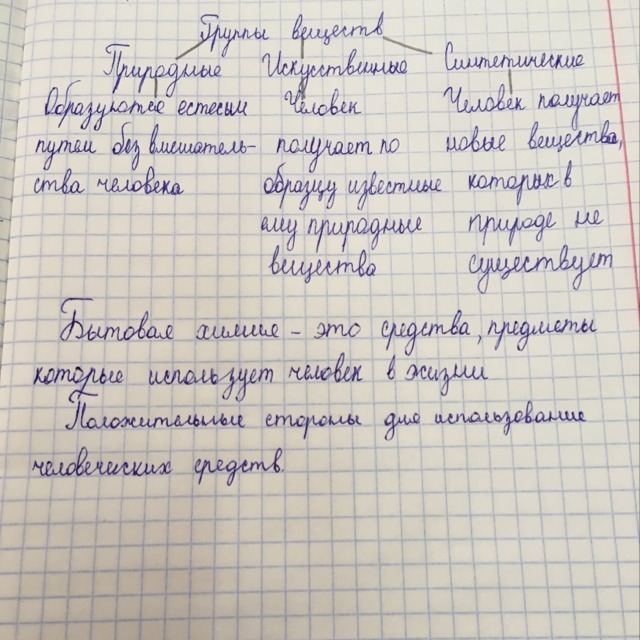 Группы веществ
Природные Искусственные Синтетические
Образуются естесым Человек Человек получает
путем без вмешатель- получает по новые вещества,
ства человека образцу известные которых в
ему природные природе не
вещества существует
Бытовая химия - это средства, предметы
которые использует человек в жизни
Положительные стороны для использование
человеческих средств.